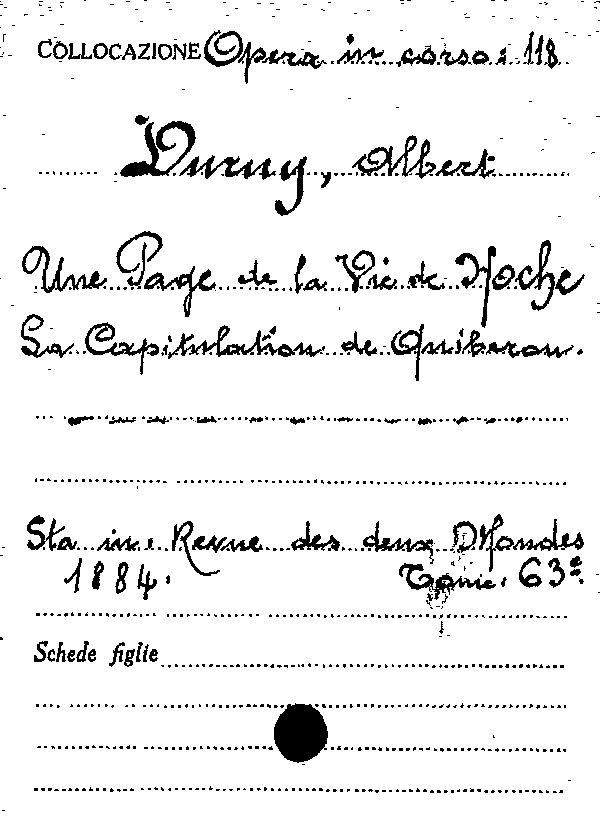 COLLOCAZIONE Opera in corso: 118
Duruy, Albert
Une Page de la Vie de Hoche
La Capitulation de Quiberon.
Sta in: Revue des deux Mondes
1884. Tome. 63e.
Schede figlie